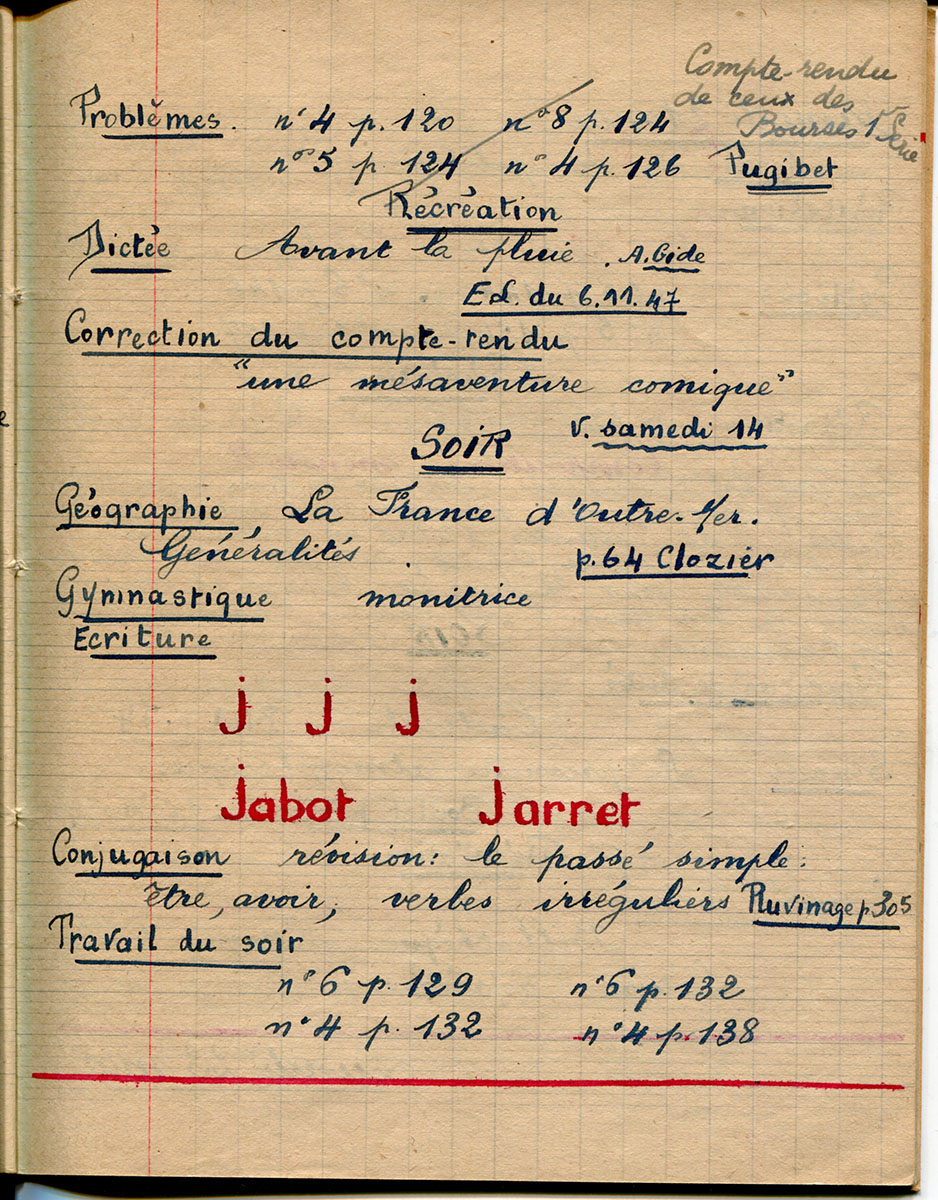 Compte-rendu
de ceux des
Bourses 1re Série
Problèmes. n° 4 p. 120 n° 8 p. 124
n° 5 p. 124 n° 4 p. 126 Pugibet
Récréation
Dictée Avant la pluie. A. Gide
Ed. du 6.11.47
Correction du compte-rendu
"une mésaventure comique"
v. samedi 14
SOIR
Géographie La France d'Outre-Mer.
Généralités p. 64 Clozier
Gymnastique monitrice
Ecriture
j j j
jabot jarret
Conjugaison révision: le passé simple:
être, avoir, verbes irréguliers Pluvinage p 305
Travail du soir
n° 6 p. 129 n° 6 p. 132
n° 4 p. 132 n° 4 p. 138